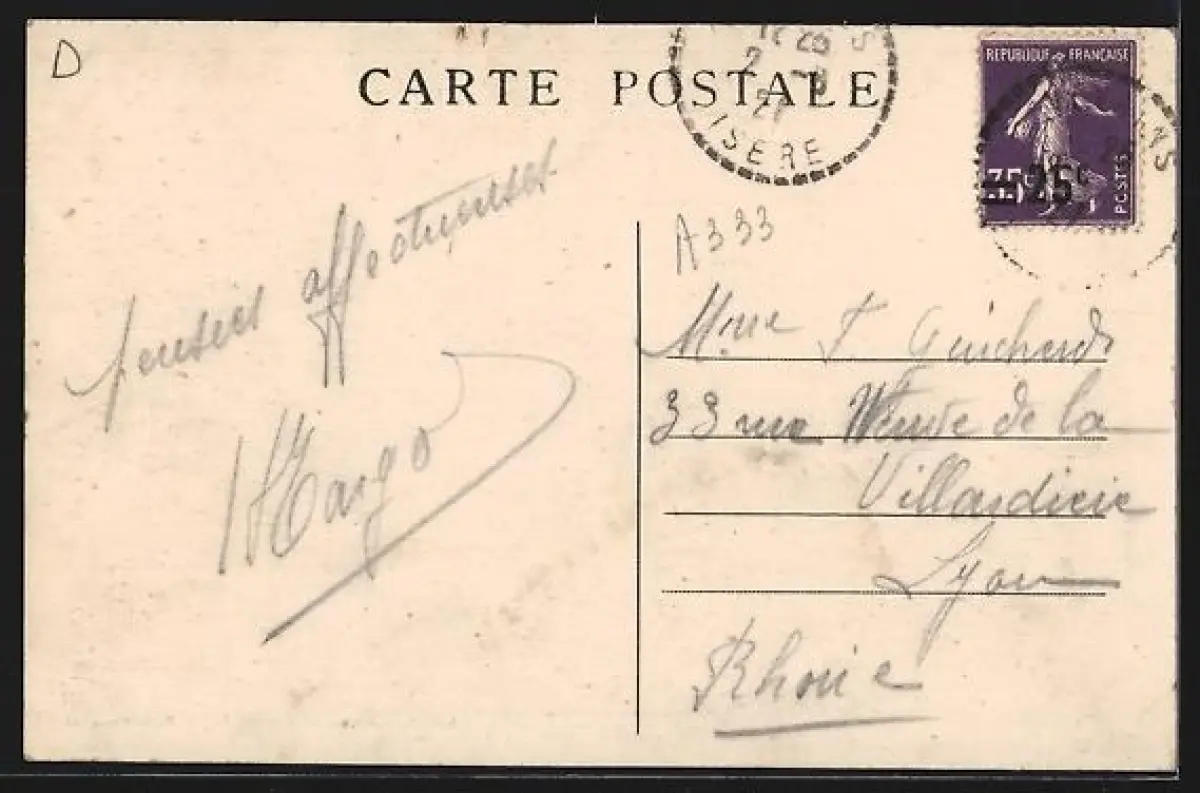 D
CARTE POSTALE
ISERE
REPUBLIQUE FRANÇAISE
25c
POSTES
A333
pensées affectueuses
Margo
Mme F Guicherd
33 rue de la
Villardière
Lyon
Rhône